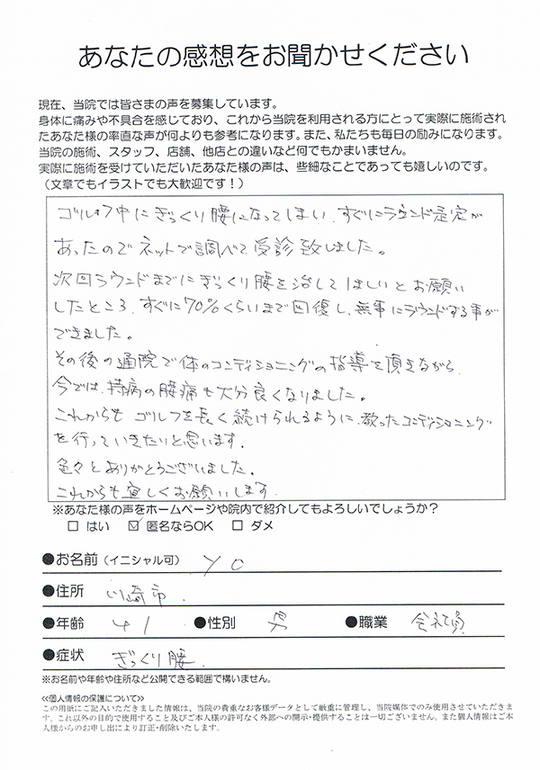 あなたの感想をお聞かせください
現在、当院では皆さまの声を募集しています。
身体に痛みや不具合を感じており、これから当院を利用される方にとって実際に施術され
たあなた様の率直な声が何よりも参考になります。また、私たちも毎日の励みになります。
当院の施術、スタッフ、店舗、他店との違いなど何でもかまいません。
実際に施術を受けていただいたあなた様の声は、些細なことであっても嬉しいのです。
（文章でもイラストでも大歓迎です！）
ゴルフ中にぎっくり腰になってしまい、すぐにラウンド予定が
あったのでネットで調べて受診致しました。
次回ラウンドまでにぎっくり腰を治してほしいとお願い
したところ、すぐに70%くらいまで回復し、無事にラウンドする事が
できました。
その後の通院で体のコンディショニングの指導を頂きながら、
今では、持病の腰痛も大分良くなりました。
これからも ゴルフを長く続けられるように、教ったコンディショニング
を行っていきたいと思います。
色々とありがとうございました。
これからも宜しくお願いします。
※あなた様の声をホームページや院内で紹介してもよろしいでしょうか？
□ はい ☑ 匿名ならOK □ ダメ
●お名前（イニシャル可） YO
●住所 川崎市.
●年齢 41 ●性別 男 ●職業 会社員
●症状 ぎっくり腰.
※お名前や年齢や住所など公開できる範囲で構いません。
≪個人情報の保護について≫
この用紙にご記入いただきました情報は、当院の貴重なお客様データとして厳重に管理し、当院媒体でのみ使用させていただきま
す。これ以外の目的で使用すること及びご本人様の許可なく外部への開示・提供することは一切ございません。また個人情報はご本
人様からのお申し出により訂正・削除いたします。